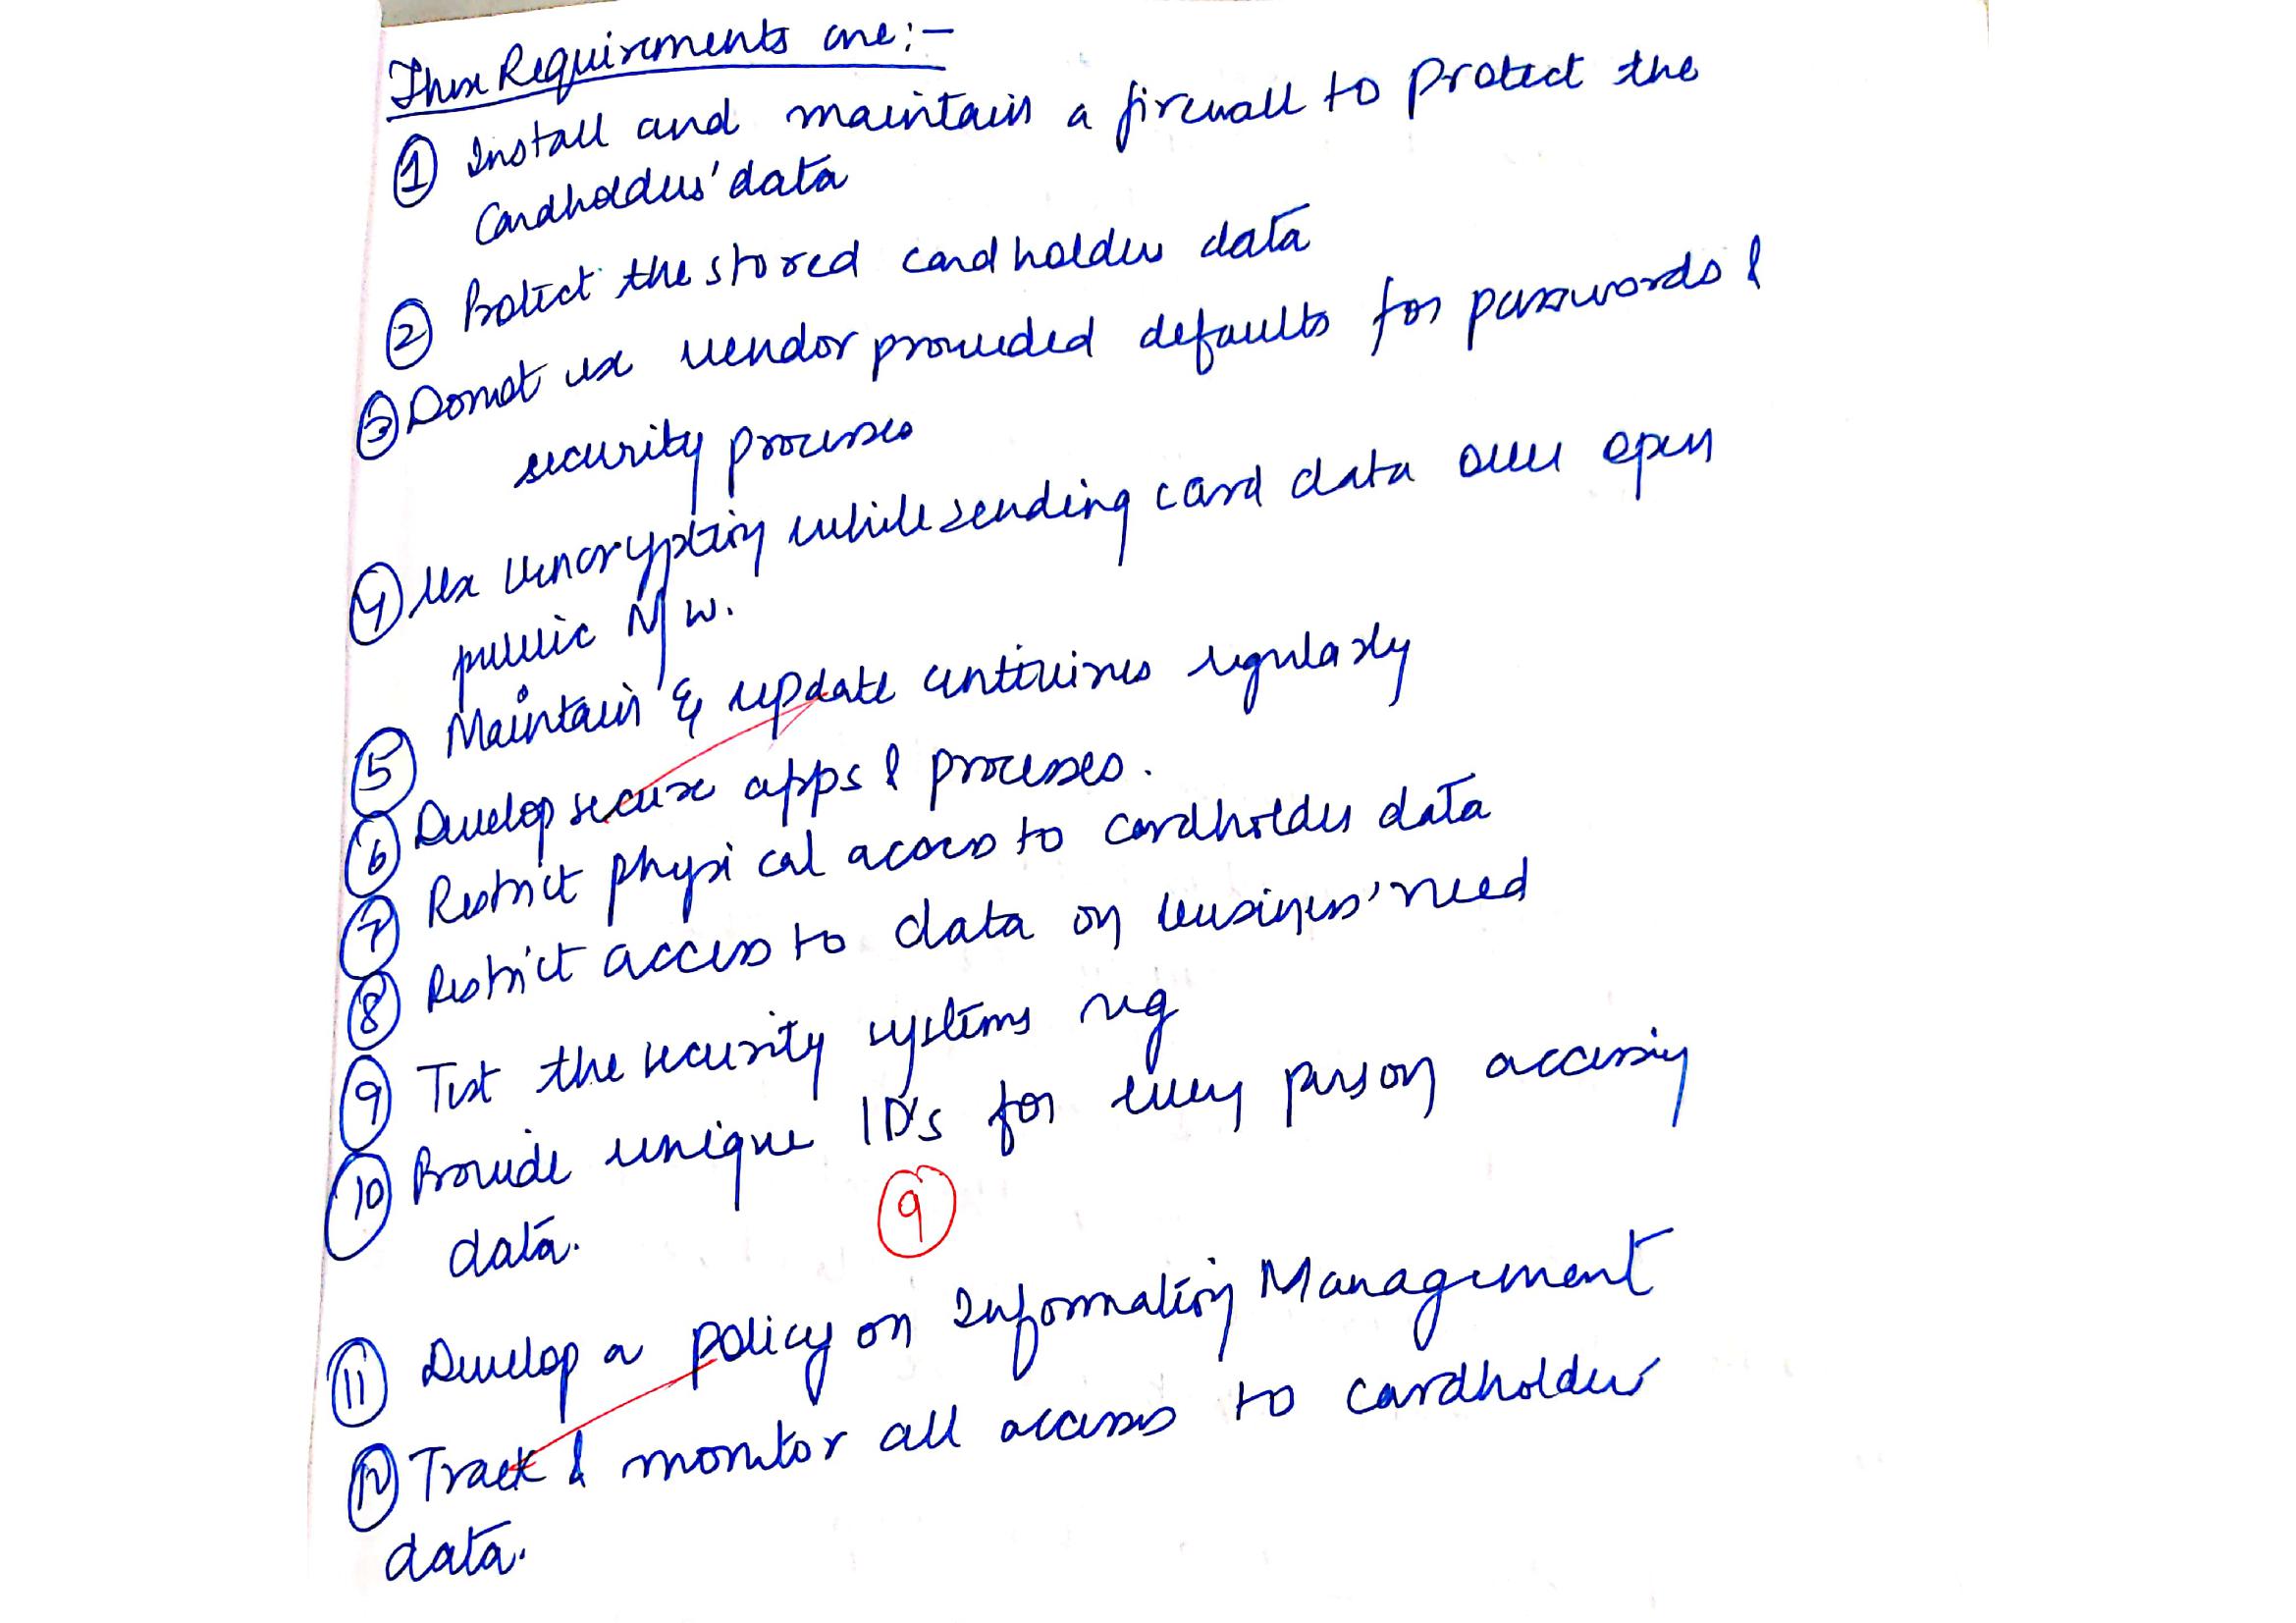 These Requirements are:-
① Install and maintain a firewall to protect the
Cardholders' data
② Protect the stored cardholder data
③ Donot use vendor provided defaults for passwords &
security processes
④ Use encryption while sending card data over open
public N/w.
⑤ Maintain & update antivirus regularly
⑥ Develop secure apps & processes.
⑦ Restrict physical access to cardholder data
⑧ Restrict access to data on business' need
⑨ Test the security systems reg
⑩ Provide unique ID's for every person accessing
data.
⑨
⑪ Develop a policy on Information Management
⑫ Track & monitor all accesses to cardholder
data.